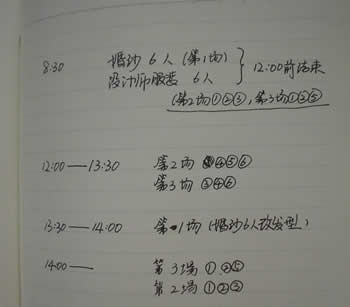 8:30 婚纱 6人 (第1场)
设计师服装 6人 } 12:00前结束
(第2场①②③, 第3场①②⑤)
12:00——13:30 第2场 ④⑤⑥
第3场 ③④⑥
13:30——14:00 第1场 (婚纱6人改发型)
14:00—— 第3场 ①②⑤
第2场 ①②③